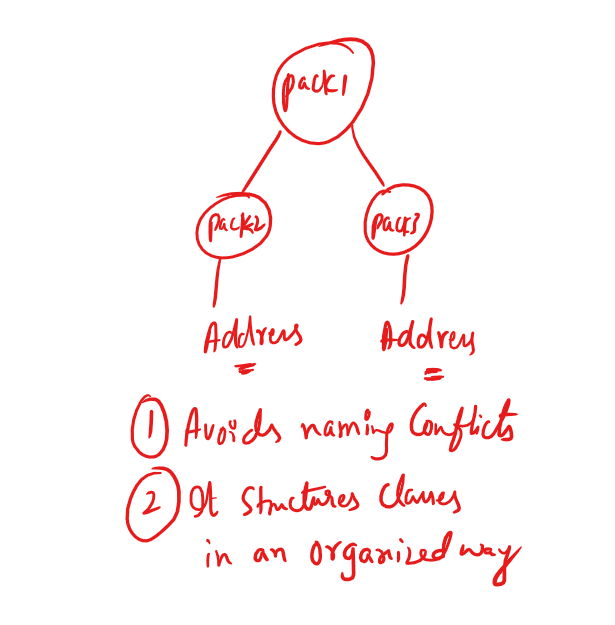 pack1
pack2 pack3
Address Address
1 Avoids naming Conflicts
2 It Structures Classes
in an organized way